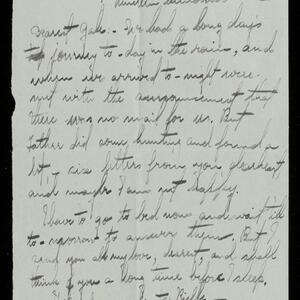 Dearest Gale :- We had a long day's
journey to-day in the rain, and
when we arrived to-night were
met with the announcement that
there was no mail for us. But
Father did some hunting and found a
lot, six letters from you dearheart
and maybe I am not happy.
I have to go to bed now and wait till
to-morrow to answer them. But I
send you all my love, dearest, and shall
think of you a long time before I sleep.